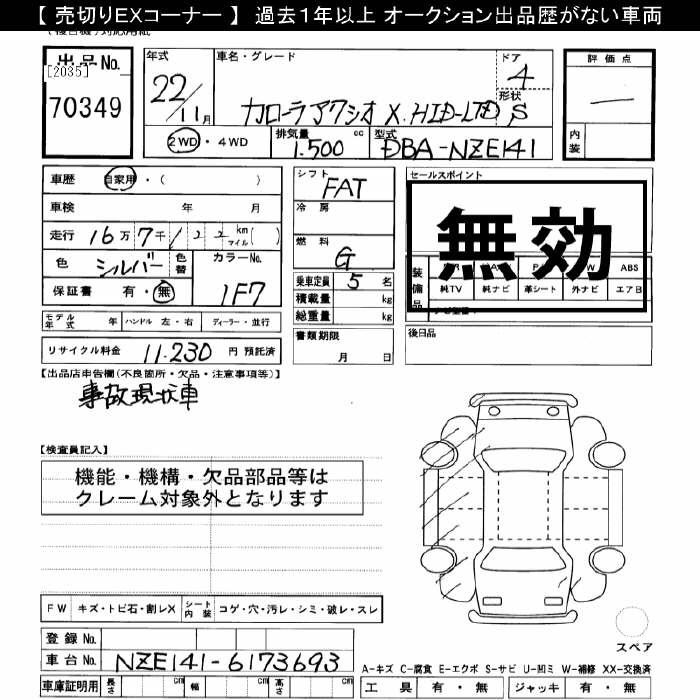 【 売切りEXコーナー 】 過去1年以上 オークション出品歴がない車両
出品No.
[2035]
70349
年式
22/11月
車名・グレード
カローラアクシオ X.HID-LTD
ドア
4
形状
S
2WD・4WD
排気量 cc
1.500
型式
DBA-NZE141
評価点
—
内装
車歴 自家用・( )
車検 年 月
走行 16万7千122 km マイル( )
色 シルバー 色替 カラーNo.
1F7
保証書 有・無
モデル年式 年 ハンドル 左・右 ディーラー・並行
リサイクル料金 11.230 円 預託済
シフト
FAT
冷房
燃料
G
乗車定員 5 名
積載量 kg
総重量 kg
書類期限
月 日
セールスポイント
無効
装備品
ABS
純TV 純ナビ 革シート 外ナビ エアB
後日品
【出品店申告欄(不良箇所・欠品・注意事項等)】
事故現状車
【検査員記入】
機能・機構・欠品部品等は
クレーム対象外となります
FW キズ・トビ石・割レX シート内装 コゲ・穴・汚レ・シミ・破レ・スレ
登録No.
車台No. NZE141-6173693
車庫証明用 長さ cm 幅 cm 高さ cm
スペア
A-キズ C-腐食 E-エクボ S-サビ U-凹ミ W-補修 XX-交換済
工具 有・無 ジャッキ 有・無